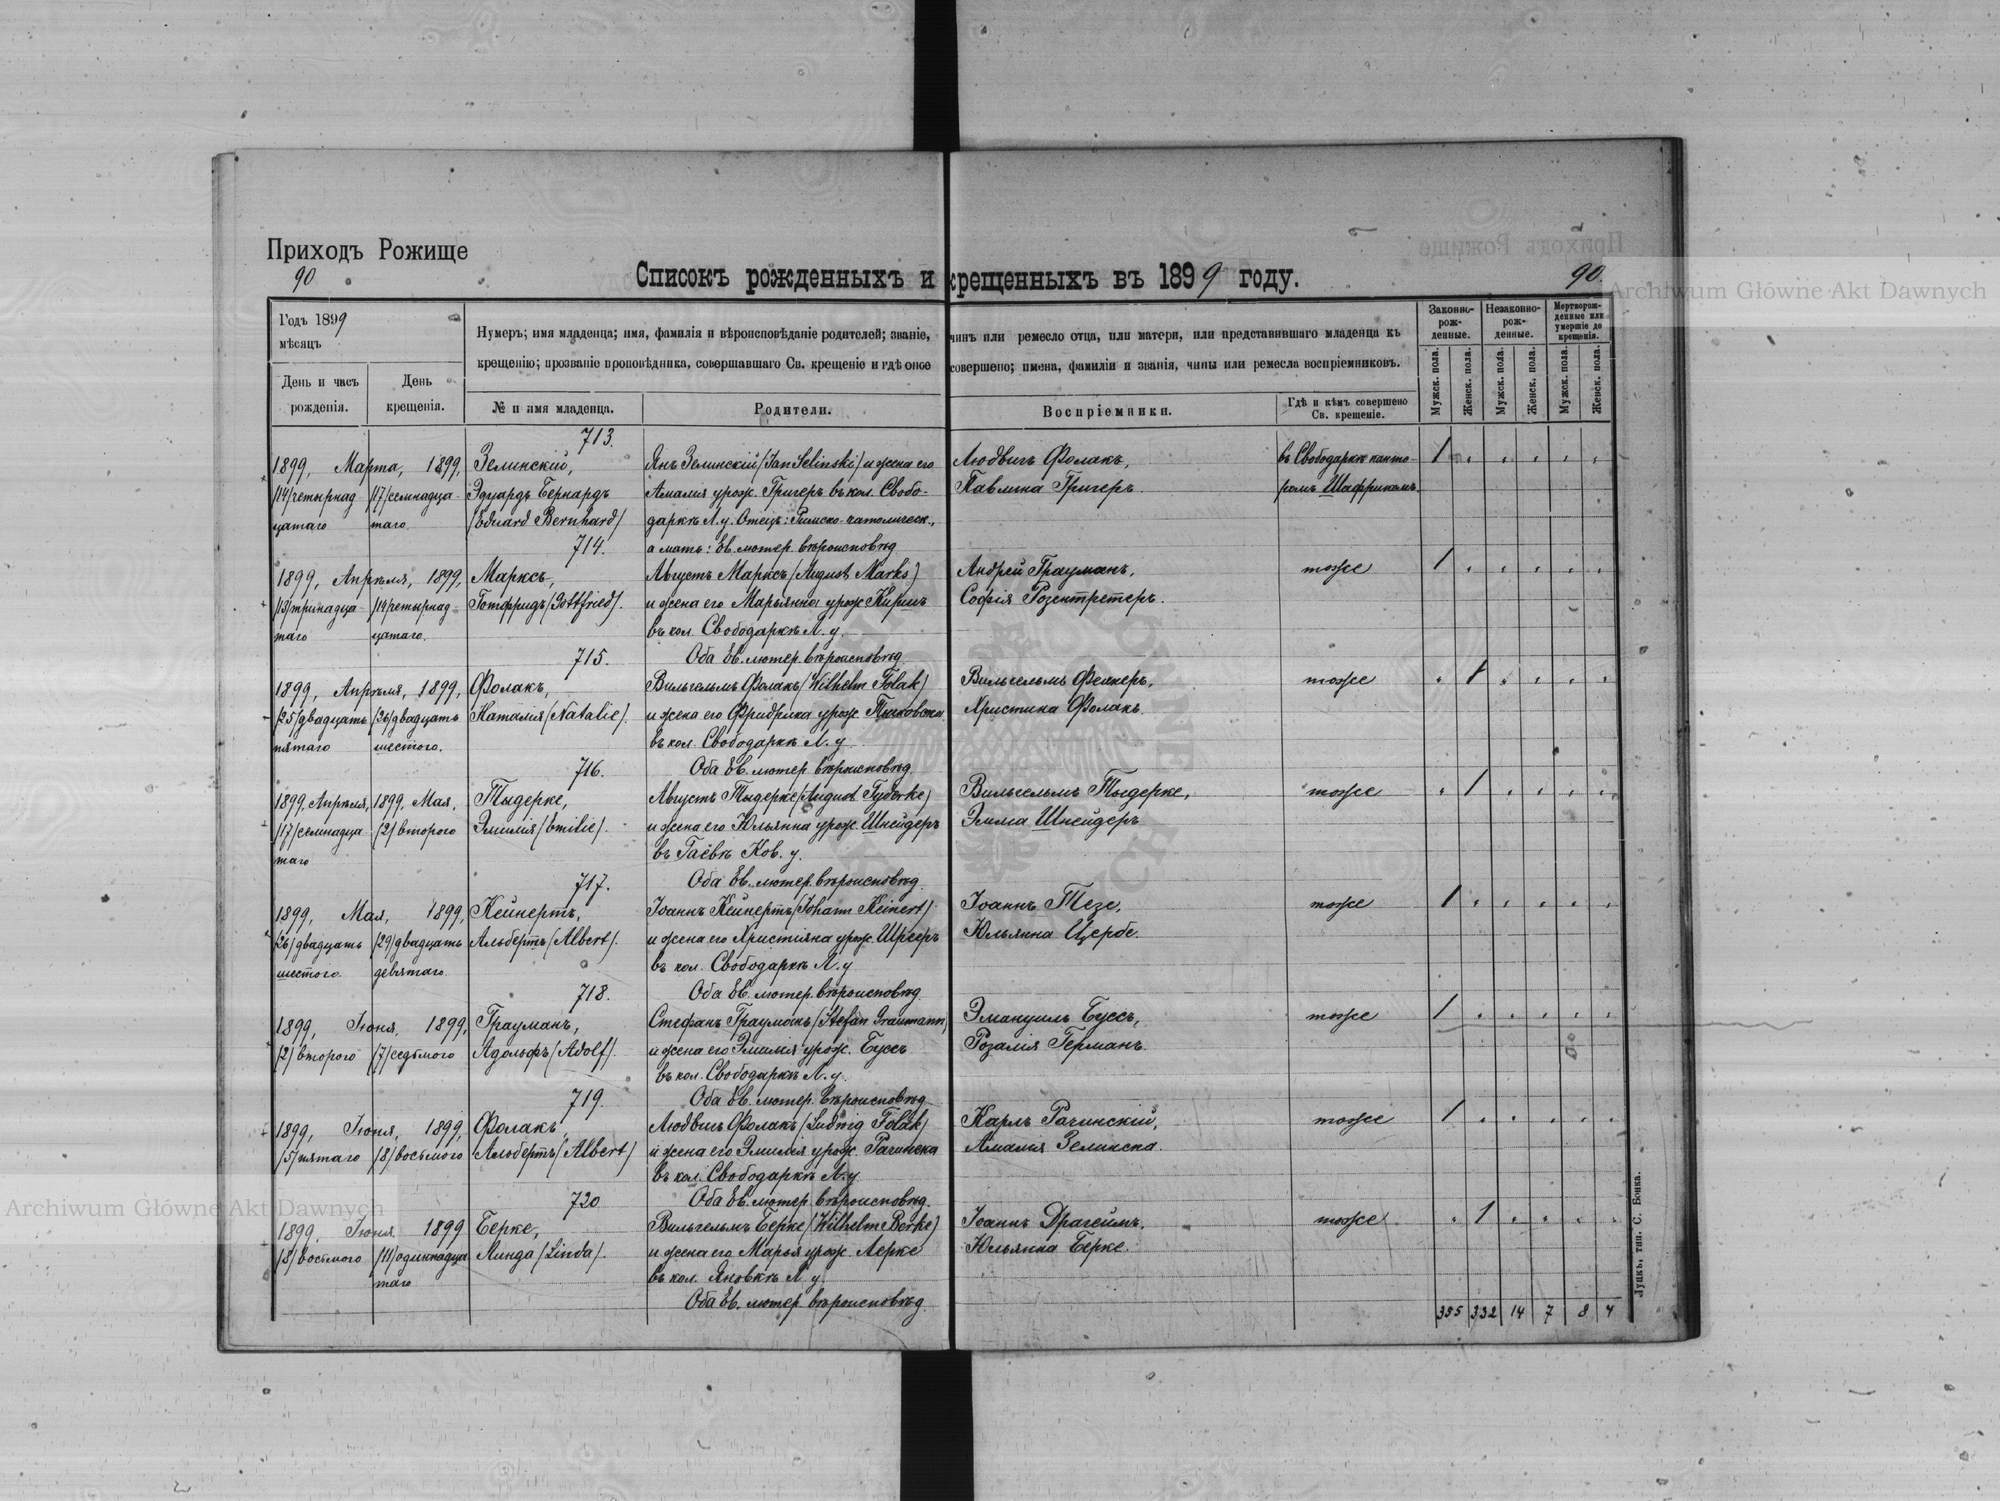 Приходъ Рожище
90
Списокъ рожденныхъ и крещенныхъ въ 1899 году.
90.
Archiwum Główne Akt Dawnych
Годъ 1899
мѣсяцъ
День и часъ рожденія.
День крещенія.
Нумеръ; имя младенца; имя, фамилія и вѣроисповѣданіе родителей; званіе, чинъ или ремесло отца, или матери, или представившаго младенца къ
крещенію; прозваніе проповѣдника, совершавшаго Св. крещеніе и гдѣ оное совершено; имена, фамиліи и званія, чины или ремесла воспріемниковъ.
№ и имя младенца.
Родители.
Воспріемники.
Гдѣ и кѣмъ совершено Св. крещеніе.
Законно-рож-денные.
Незаконно-рож-денные.
Мертворож-денные или умершіе до крещенія.
Мужск. пола.
Женск. пола.
Мужск. пола.
Женск. пола.
Мужск. пола.
Женск. пола.
713.
1899, Марта, 1899, Зелинскій, Янъ Зелинскій (Jan Selinski) и жена его Людвигъ Фолакъ, въ Свободаркѣ канто- 1
(14) четырнад (17) семнадца- Эдуардъ Бернардъ Амалія урож. Григеръ въ кол. Свобо- Павлина Григеръ. ромъ Шаффрикомъ.
цатаго таго. (Eduard Bernhard) даркѣ Л. у. Отецъ: Римско-католическ.,
714. а мать: Ев. лютер. вѣроисповѣд.
1899, Апрѣля, 1899, Марксъ, Августъ Марксъ (August Marks) Андрей Грауманъ, тоже 1
(13) тринадца- (14) четырнад Готфридъ (Gottfried). и жена его Марьянна урож. Киршъ Софія Розентретеръ.
таго цатаго. въ кол. Свободаркѣ Л. у.
715. Оба Ев. лютер. вѣроисповѣд.
1899, Апрѣля, 1899, Фолакъ, Вильгельмъ Фолакъ (Wilhelm Folak) Вильгельмъ тоже 1
(25) двадцать (26) двадцать Наталія (Natalie). и жена его Фридрика урож. Христина Фолакъ.
пятаго шестого. въ кол. Свободаркѣ Л. у.
716. Оба Ев. лютер. вѣроисповѣд.
1899, Апрѣля, 1899, Мая, Тыдерке, Августъ Тыдерке (August Tyderke) Вильгельмъ Тыдерке, тоже 1
(17) семнадца (2) второго Эмилія (Emilie). и жена его Юльянна урож. Шнейдеръ Эмма Шнейдеръ
таго въ Гаёвкѣ Ков. у.
717. Оба Ев. лютер. вѣроисповѣд.
1899, Мая, 1899, Кейнертъ, Іоаннъ Кейнертъ (Johann Keinert) Іоаннъ Тезе, тоже 1
(26) двадцать (29) двадцать Альбертъ (Albert). и жена его Христіяна урож. Юльянна Цербе.
шестого. девятаго въ кол. Свободаркѣ Л. у
718. Оба Ев. лютер. вѣроисповѣд.
1899, Іюня, 1899, Грауманъ, Стефанъ Грауманъ (Stefan Graumann) Эмануилъ Буссъ, тоже 1
(2) второго (7) седьмого Адольфъ (Adolf). и жена его Эмилія урож. Буссъ Розалія Германъ.
въ кол. Свободаркѣ Л. у.
719. Оба Ев. лютер. вѣроисповѣд.
1899, Іюня, 1899, Фолакъ, Людвигъ Фолакъ (Ludwig Folak) Карлъ Рачинскій, тоже 1
(5) пятаго (8) восьмого Альбертъ (Albert) и жена его Эмилія урож. Рачинска Амалія Зелинска.
въ кол. Свободаркѣ Л. у
720 Оба Ев. лютер. вѣроисповѣд.
1899, Іюня 1899 Берке, Вильгельмъ Берке (Wilhelm Berke) Іоаннъ Драгеймъ, тоже 1
(8) восьмого (11) одиннадца Линда (Linda). и жена его Марья урож. Лерке Юльянна Берке.
таго въ кол. Яновкѣ Л у.
Оба Ев. лютер. вѣроисповѣд.
355 332 14 7 8 4
Луцкъ, тип. С. Бонка.
Archiwum Główne Akt Dawnych